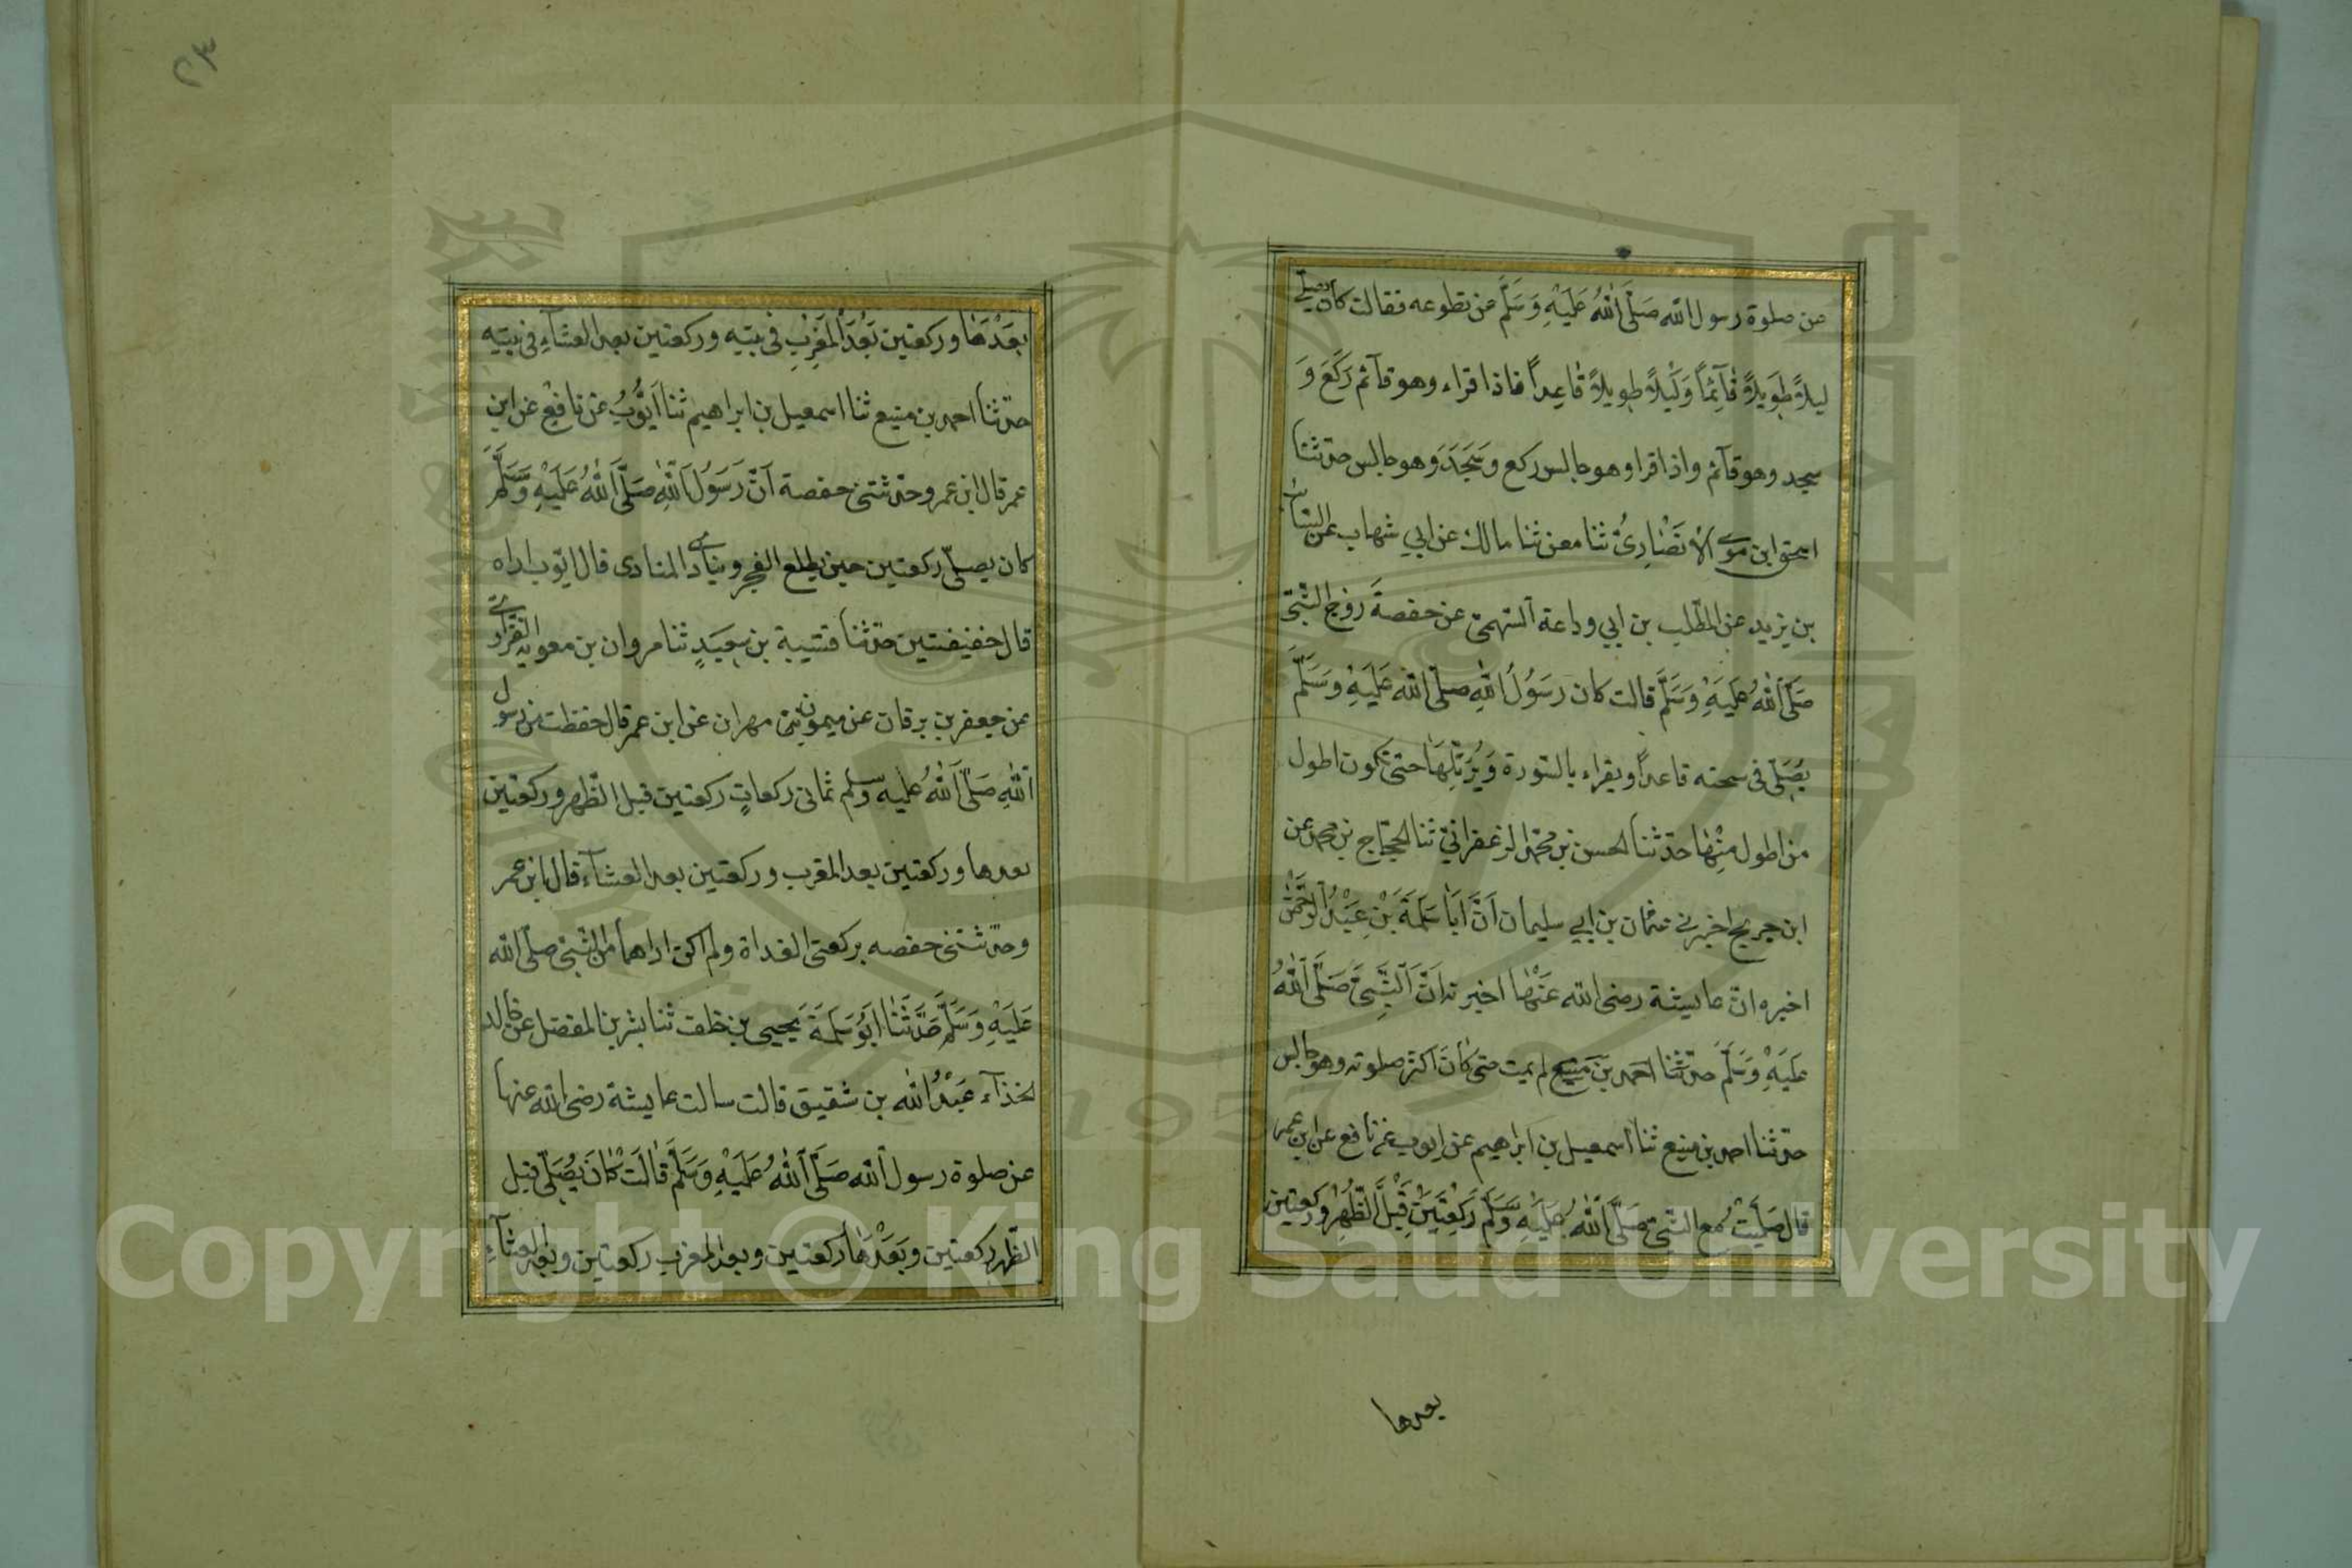 من صلوة رسول الله صَلَّى اللهُ عَلَيْهِ وَسَلَّم عن تطوعه فقالت كان يصلي
ليلاً طَوِيلاً قَآئِماً وَلَيْلاً طويلاً قَاعِداً فاذا قراء وهو قآئم رَكَعَ وَ
سجد وهو قآئم واذا قرا وهو جالس ركع وَسَجَدَ وهو جالس حدثنا
اسحق ابن موسى الاَنْصَارِىُّ ثنا معن ثنا مالك عن ابي شهاب عن السائب
بن يزيد عن المطّلب بن ابي وداعة السّهمىّ عن حفصةَ زوج النّبىّ
صَلَّى اللهُ عَلَيْهِ وَسَلَّمَ قالت كان رَسُولُ اللهِ صلّى الله عَلَيْهِ وَسَلَّمَ
يُصَلِّى فى سبحته قاعداً ويقراء بالسّورة وَيُرَتِّلُهَا حتى تكون اطول
من اطول مِنْهَا حدّثنا الحسن بن محمّد الزعفرانىّ ثنا الحجّاج بن محمد عن
ابن جريج اخبرنى عثمان بن ابي سليمان اَنَّ اَبَا سَلَمَةَ بْنِ عَبْدُ الرَّحْمٰنِ
اخبره انّ عايشة رضى الله عَنْهَا اخبرته اَنَّ النَّبِىَّ صَلَّى اللهُ
عَلَيْهِ وَسَلَّمَ حدّثنا احمد بن مَنِيع لم يمت حتى كَانَ اكثر صلوته وهو جالس
حدّثنا احمد بن منيع ثنا اسمعيل بن ابراهيم عن ايوب عن نافع عن ابن عمر
قال صَلَّيْتُ مع النّبىّ صَلَّى اللهُ عَلَيْهِ وَسَلَّم رَكْعَتَيْنِ قَبْلَ الظُّهْرِ وركعتين
بعدها
بَعْدَهَا وركعتين بَعْدَ المَغْرِبِ فى بيته وركعتين بعد العشآءِ فى بيتِهِ
حدّثنا احمد بن منيع ثنا اسمعيل بن ابراهيم ثنا اَيُّوبُ عن نافِعٍ عن ابن
عمر قال ابن عمر وحدّثتنى حفصة اَنَّ رَسُولَ اللهِ صَلَّى اللهُ عَلَيْهِ وَسَلَّمَ
كان يصلّى ركعتين حين يطلع الفجر وينادى المنادى قال ايّوب اراه
قال خفيفتين حدّثنا قتيبة بن سعِيدٍ ثنا مروان بن معوية الفزارى
عن جعفر بن برقان عن ميمون بن مهران عن ابن عمر قال حفظت من رسول
اللهِ صَلَّى اللهُ عليه وسلم ثمانى ركعاتٍ ركعتين قبل الظّهر وركعتين
بعدها وركعتين بعد المغرب وركعتين بعد العشآء قال ابن عمر
وحدّثتنى حفصه بركعتى الغداة ولم اكن اراهما من النّبىّ صلّى الله
عَلَيْهِ وَسَلَّمَ حَدَّثَنَا اَبُو سَلَمَةَ يَحيى بن خلف ثنا بشر بن المفضل عن خالد
الحذآء عَبْدُ الله بن شقيق قالت سالت عايشة رضى الله عنها
عن صلوة رسول الله صَلَّى اللهُ عَلَيْهِ وَسَلَّمَ قَالَتْ كَانَ يُصَلِّى قبل
الظّهر ركعتين وبَعْدَهَا ركعتين وبعد المغرب ركعتين وبعد العشآءِ
Copyright © King Saud University
1957